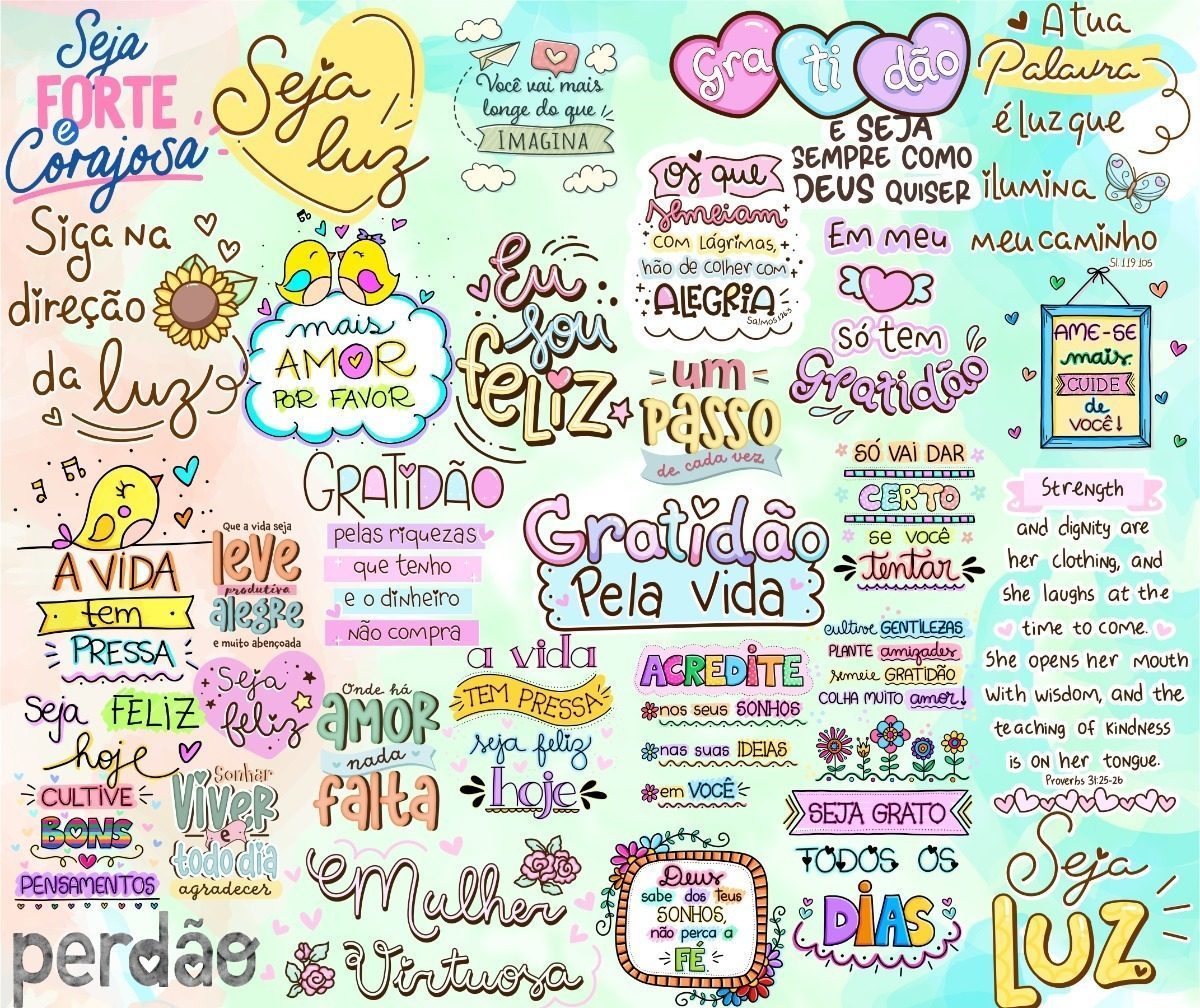 Seja
FORTE
e
Corajosa
Seja
luz
Você vai mais
longe do que
IMAGINA
Gratidão
E SEJA
SEMPRE COMO
DEUS QUISER
A tua
Palavra
é luz que
ilumina
meu caminho
Sl. 119 105
Siga na
direção
da luz
mais
AMOR
POR FAVOR
Eu
sou
feliz
os que
semeiam
COM LÁGRIMAS,
hão de colher com
ALEGRIA
Salmos 126:5
Em meu
só tem
Gratidão
AME-SE
mais
CUIDE
de
VOCÊ!
um
PASSO
de cada vez
SÓ VAI DAR
CERTO
se você
tentar
A VIDA
tem
PRESSA
Seja FELIZ
hoje
Que a vida seja
leve
produtiva
alegre
e muito abençoada
GRATIDÃO
pelas riquezas
que tenho
e o dinheiro
não compra
Gratidão
Pela Vida
Strength
and dignity are
her clothing, and
she laughs at the
time to come.
She opens her mouth
with wisdom, and the
teaching of kindness
is on her tongue.
Proverbs 31:25-26
Seja
feliz
Onde há
amor
nada
falta
a vida
TEM PRESSA
seja feliz
hoje
ACREDITE
nos seus SONHOS
nas suas IDEIAS
em VOCÊ
cultive GENTILEZAS
PLANTE amizades
semeie GRATIDÃO
COLHA MUITO amor!
CULTIVE
BONS
PENSAMENTOS
Sonhar
Viver
e
todo dia
agradecer
SEJA GRATO
TODOS OS
DIAS
perdão
Mulher
Virtuosa
Deus
sabe dos teus
SONHOS,
não perca a
FÉ
Seja
LUZ